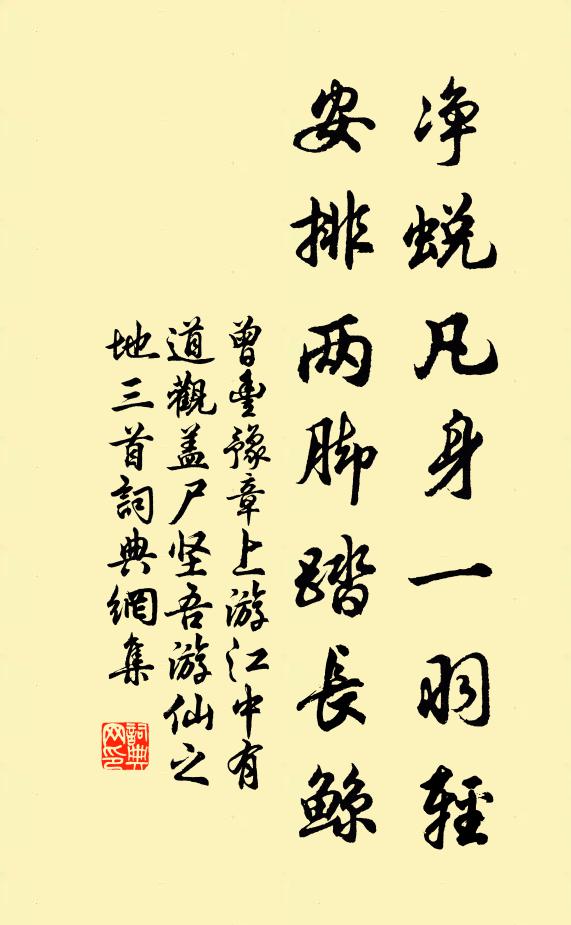 净蜕凡身一羽轻
安排两脚踏長鲸
曾豊豫章上游江中有
道觀盖尸坚吾游仙之
地三首詞典網集
詞典网印